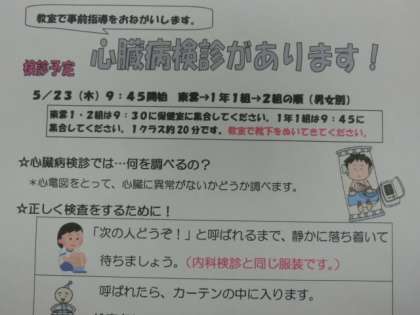 教室で事前指導をおねがいします。
心臓病検診があります！
検診予定
5／23（木）9：45開始　東雲→1年1組→2組の順（男女別）
東雲1・2組は9：30に保健室に集合してください。1年1組は9：45に
集合してください。1クラス約20分です。教室で靴下をぬいできてください。
☆心臓病検診では…何を調べるの？
＊心電図をとって、心臓に異常がないかどうか調べます。
☆正しく検査をするために！
「次の人どうぞ！」と呼ばれるまで、静かに落ち着いて
待ちましょう。（内科検診と同じ服装です。）
呼ばれたら、カーテンの中に入ります。